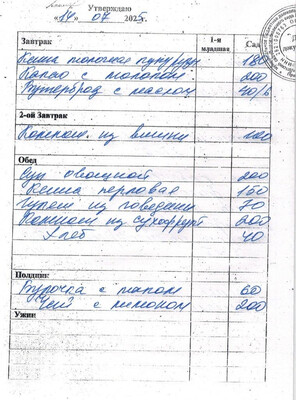 Утверждаю
«14» 07 2025
Завтрак 1-я младшая Сад
Каша молочная кукуруз 180
Какао с молоком 200
Бутерброд с маслом 40/6
2-ой Завтрак
Компот из вишни 100
Обед
Суп овощной 200
Каша перловая 150
Гуляш из говядины 70
Компот из сухофрукт 200
Хлеб 40
Полдник
Булочка с маком 60
Чай с лимоном 200
Ужин